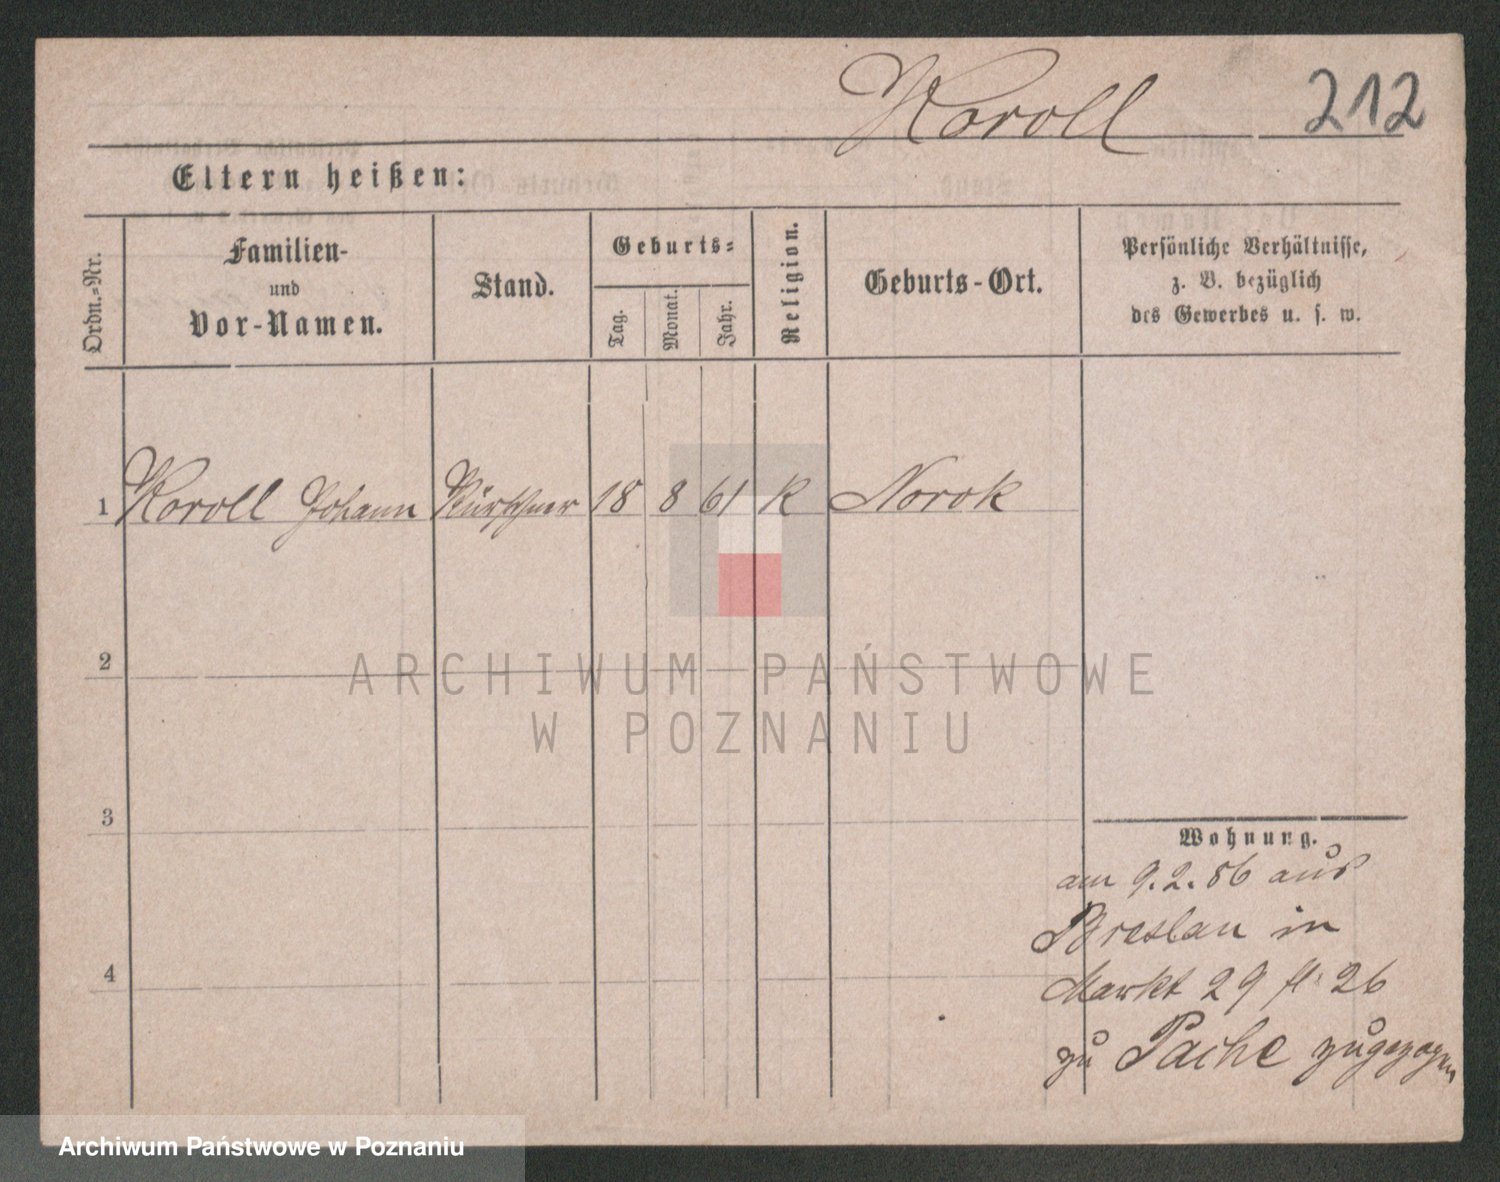 Koroll 212
Eltern heißen:
Ordn.-Nr.
Familien-
und
Vor-Namen.
Stand.
Geburts-
Tag.
Monat.
Jahr.
Religion.
Geburts-Ort.
Persönliche Verhältnisse,
z. B. bezüglich
des Gewerbes u. s. w.
1 Koroll Johann Kürschner 18 8 61 k Norok
2
ARCHIWUM PAŃSTWOWE
W POZNANIU
3
Wohnung.
am 9.2.86 aus
Breslau in
4
Markt 29 26
zu Pache zugezogen
Archiwum Państwowe w Poznaniu